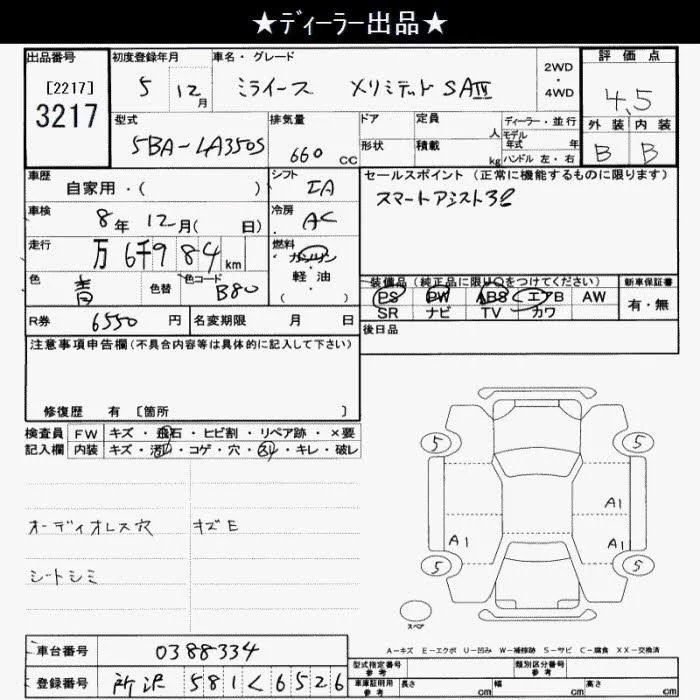 ★ディーラー出品★
出品番号
[2217]
3217
初度登録年月
5 12月
車名・グレード
ミライース メリミテッド SAⅢ
2WD
・
4WD
評価点
4.5
外装 内装
B B
型式
5BA-LA350S
排気量
660 cc
ドア
形状
定員 人
積載 kg
ディーラー・並行
モデル年式 年
ハンドル 左・右
車歴
自家用・( )
シフト
IA
セールスポイント (正常に機能するものに限ります)
スマートアシスト3
車検
8年 12月( 日)
冷房
AC
走行
万 6千984 km
燃料
ガソリン
・
軽油
( )
色
青
色替
色コード
B80
装備品(純正品に限り○をつけてください)
PS PW ABS エアB AW
SR ナビ TV カワ
新車保証書
有・無
R券 6550 円
名変期限 月 日
後日品
注意事項申告欄(不具合内容等は具体的に記入して下さい)
修復歴 有 [箇所 ]
検査員
記入欄
FW キズ・飛石・ヒビ割・リペア跡・×要
内装 キズ・汚れ・コゲ・穴・スレ・キレ・破レ
オーディオレス穴 キズE
シートシミ
5 5
A1
A1
5 5
スペア
A-キズ E-エクボ U-凹み W-補修跡 S-サビ C-腐食 XX-交換済
車台番号 0388334
登録番号 所沢 581く6526
型式指定番号
参考
類別区分番号
参考
車庫証明用
参考
長さ cm 幅 cm 高さ cm